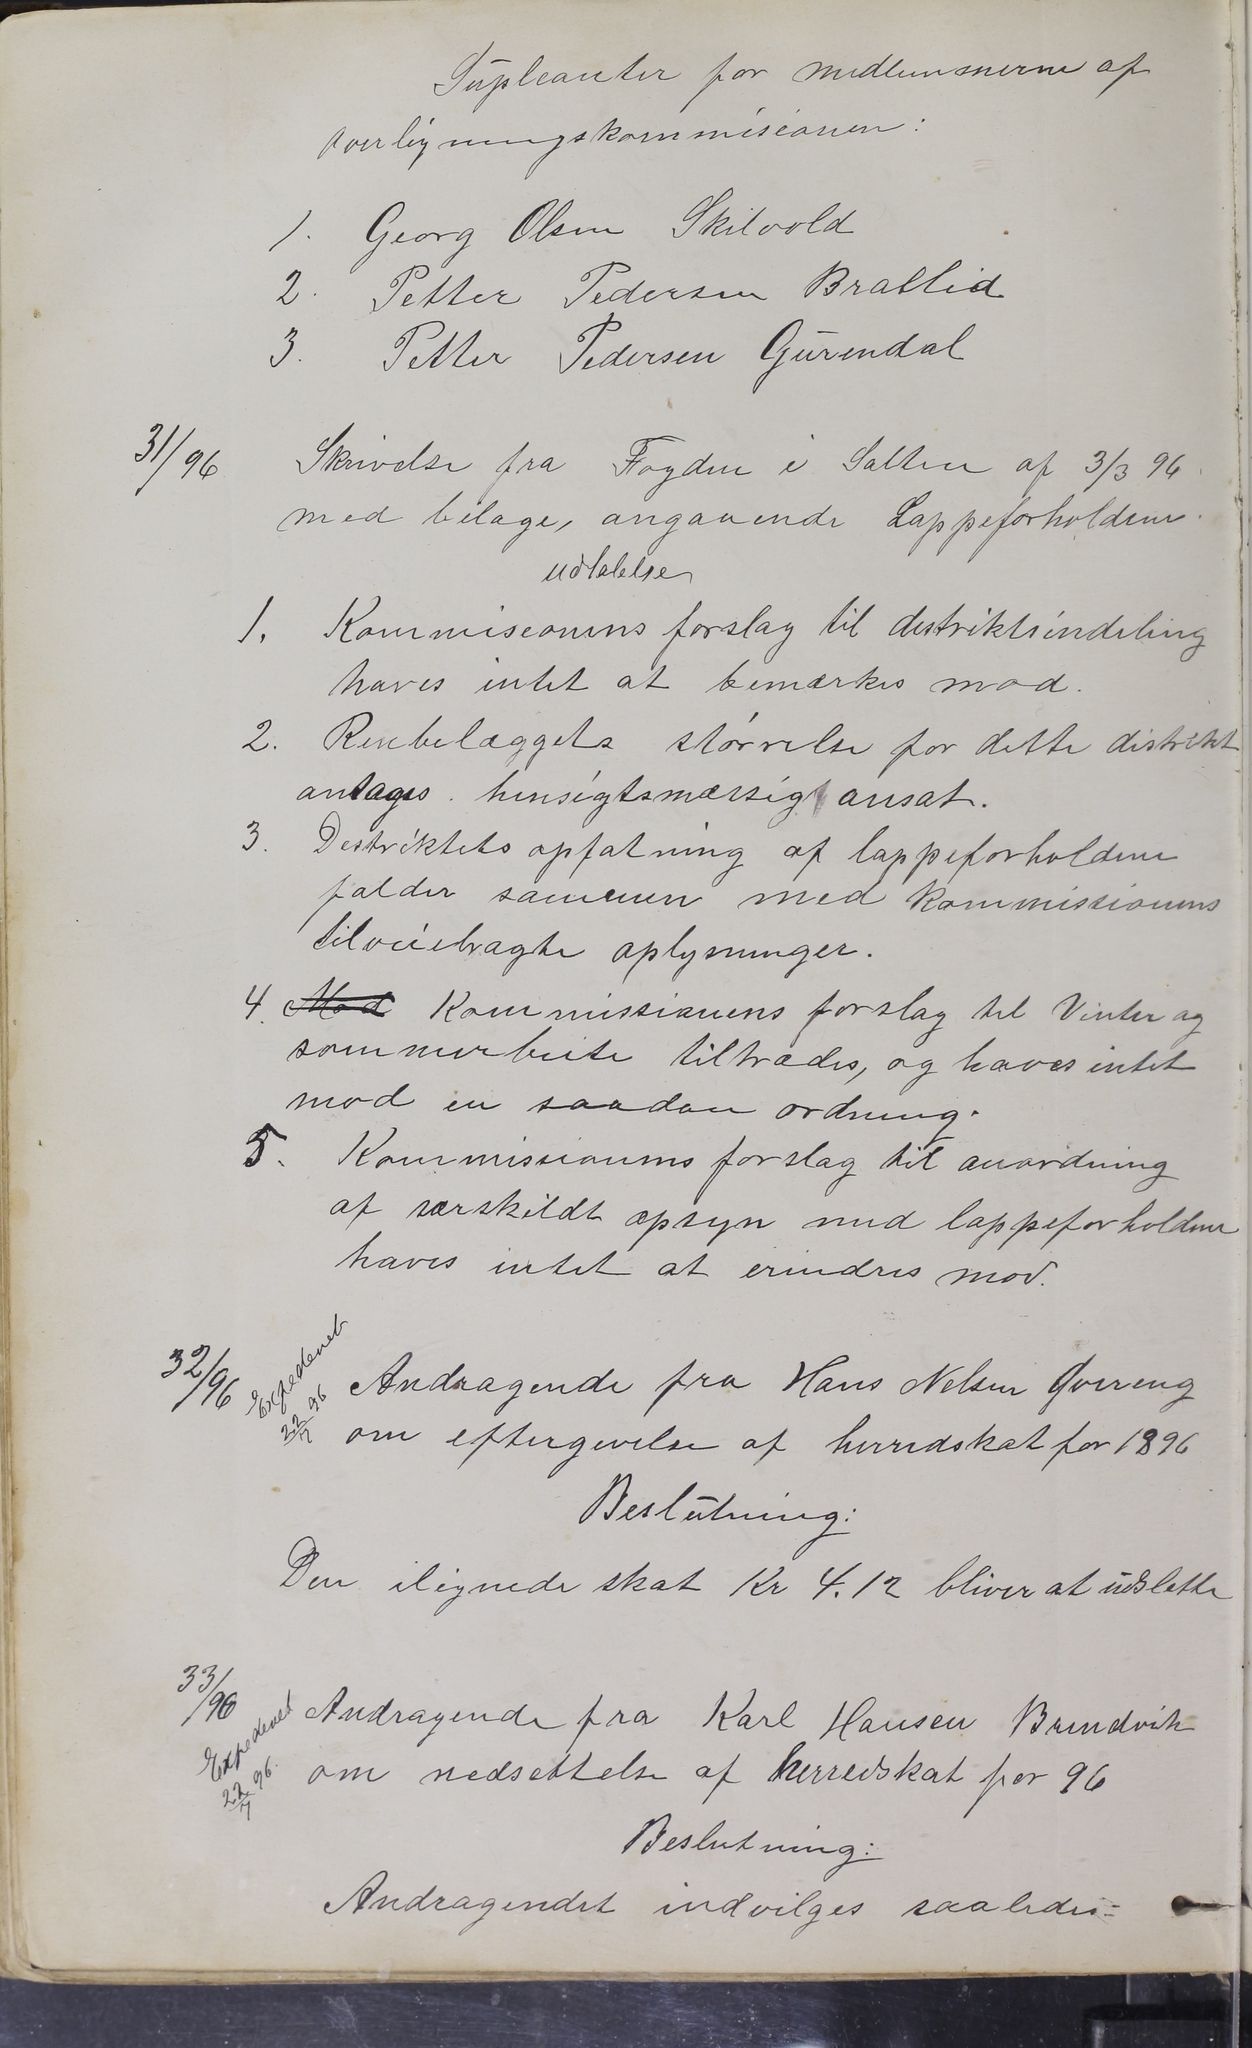 Supleanter for medlemmerne af
overligningskommisionen:
1. Georg Olsen Skilvold
2. Petter Pedersen Bratlid
3. Petter Pedersen Gurendal
31/96 Skrivelse fra Fogden i Salten af 3/3 96
med bilage, angaaende Lappeforholdene.
udtalelse
1. Kommisionens forslag til distriktsindeling
haves intet at bemærkes mod.
2. Renbelæggets størrelse for dette distrikt
antages hensigtsmæssig ansat.
3. Destriktets opfatning af lappeforholdene
falder sammen med Kommissionens
tilveiebragte oplysninger.
4. Mod Kommissionens forslag til Vinter og
sommerbeite tiltrædes, og haves intet
mod en saadan ordning.
5. Kommissionens forslag til anordning
af særskildt opsyn med lappeforholdene
haves intet at erindres mod.
32/96 Expederet 22/7 96 Andragende fra Hans Nelsen Qværeng
om eftergevelse af herredskat for 1896
Beslutning:
Den ilignede skat Kr 4.12 bliver at udslette
33/96 Expederet 22/7 96. Andragende fra Karl Hansen Brundvik
om nedsettelse af herredskat for 96
Beslutning:
Andragendet indvilges saaledes=